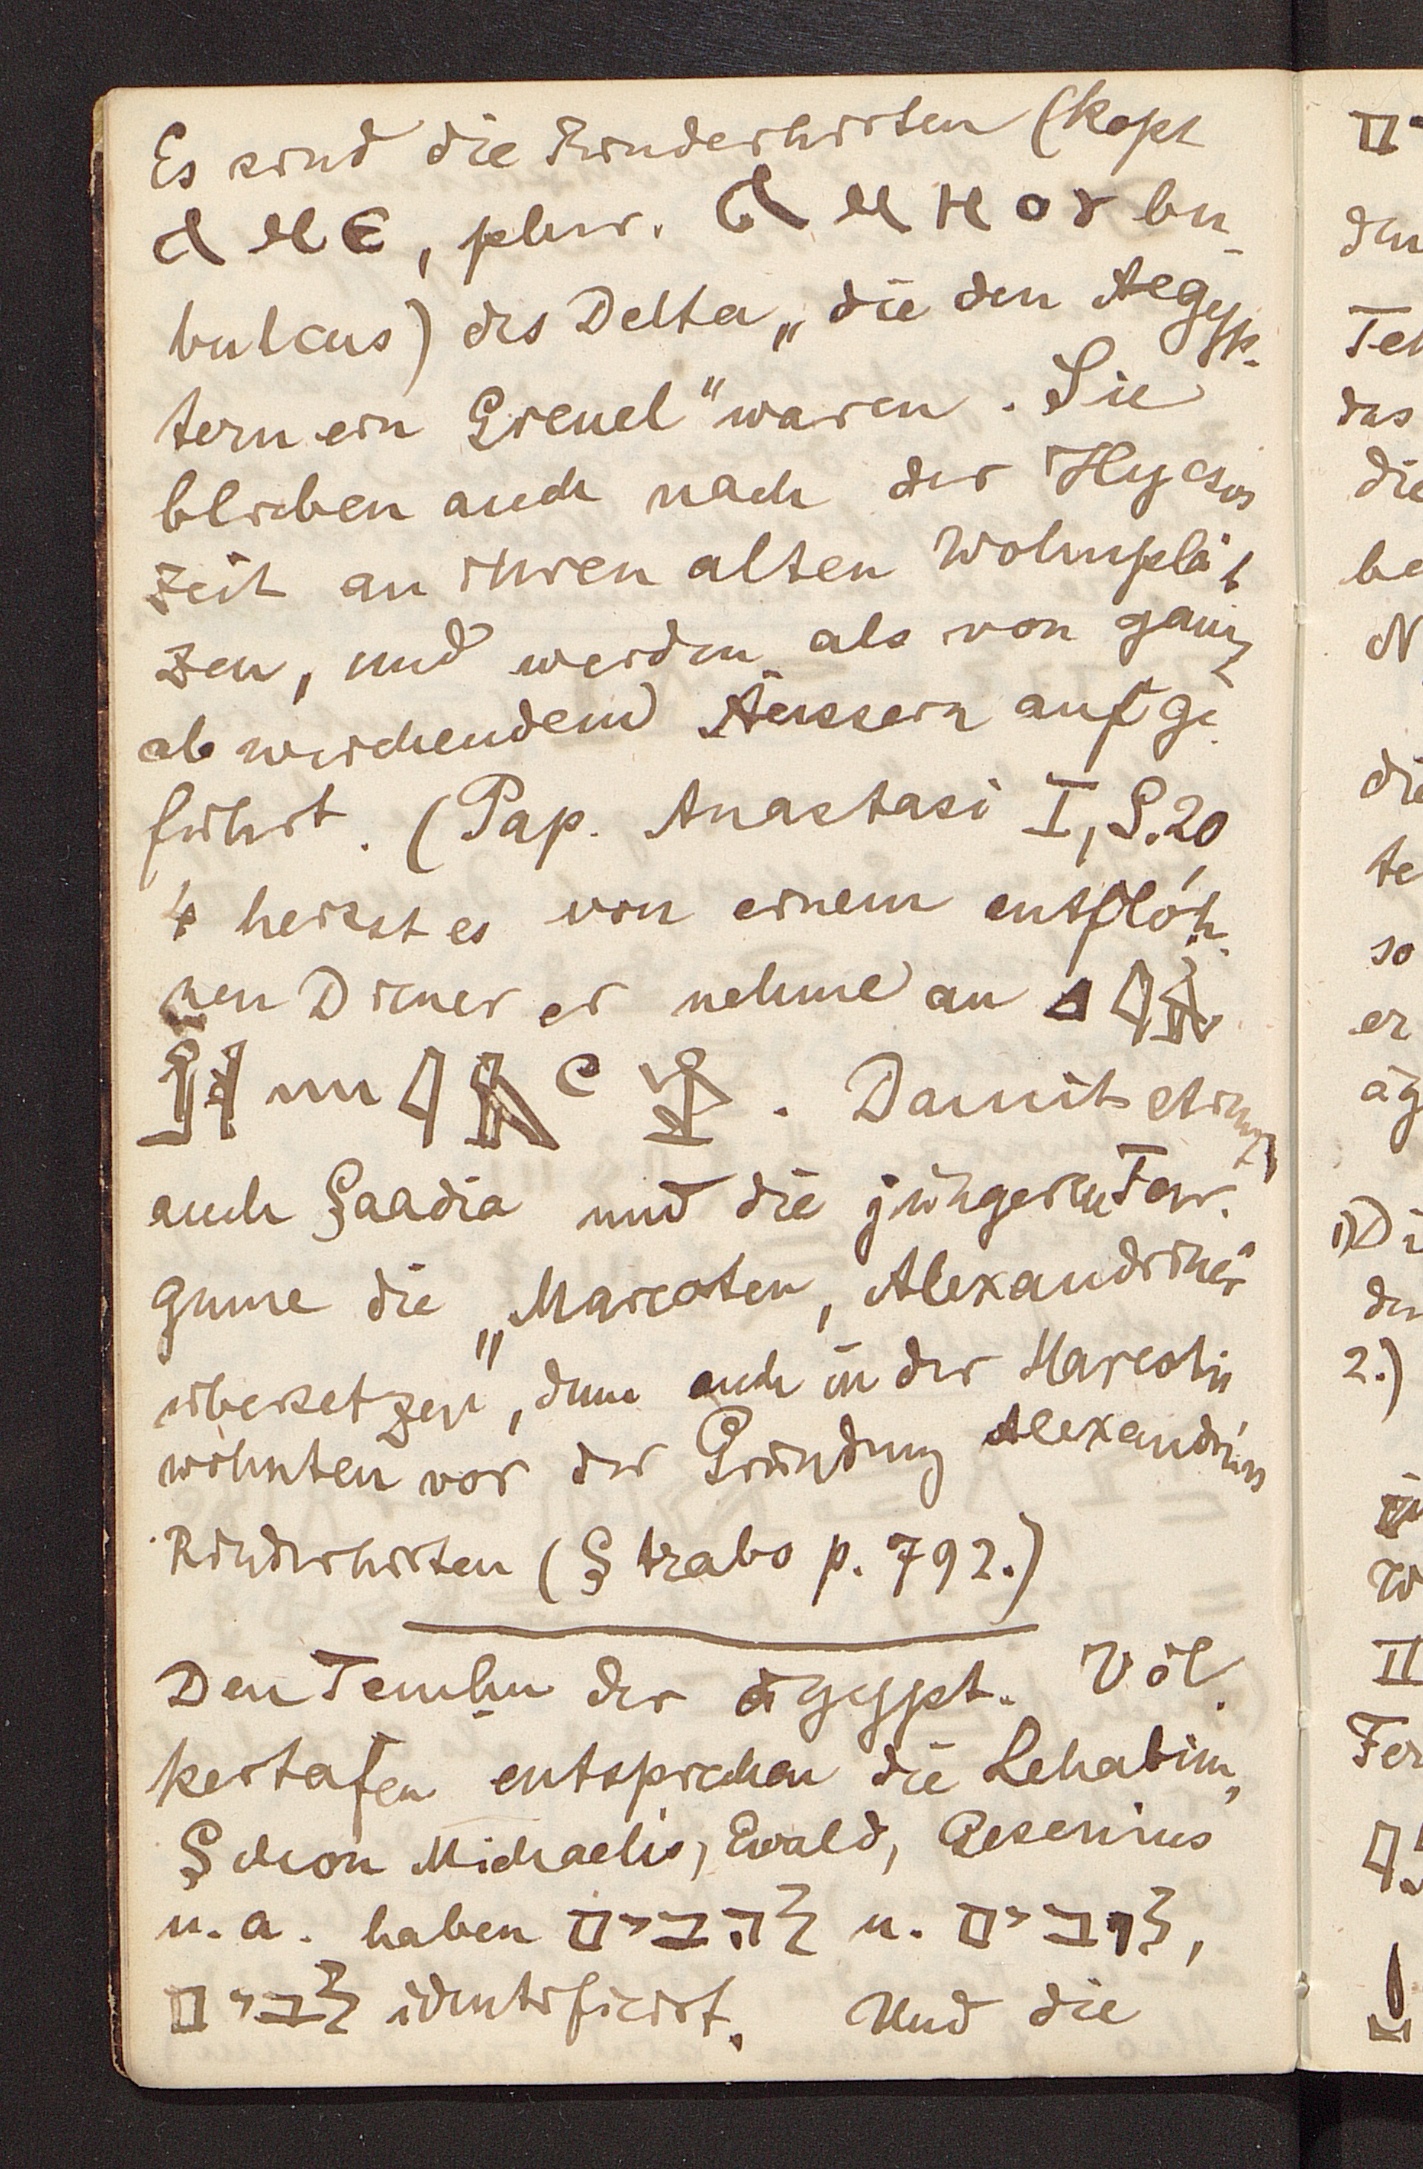 Es sind die Rinderhirten (kopt
ⲁⲙⲉ, plur. ⲁⲙⲏⲟⲩ bu-
bulcus) des Delta „die den Aegyp-
tern ein Greuel" waren. Sie
blieben auch nach der Hycsos
zeit an ihren alten Wohnplät
zen, und werden als von ganz
abweichendem Äussern aufge
führt. (Pap. Anastasi I, S. 20
4 heisst es von einem entfloh
nen Diener er nehme an
Damit stimmt
auch Saadia und die jüngeren Tar-
gume die „Mareoten, Alexandriner
übersetzen, denn auch in der Mareotis
wohnten vor der Gründung Alexandriens
Rinderhirten (Strabo p. 792.)
Den Temḥu der ägypt. Völ
kertafen entsprechen die Lehabim,
Schon Michaelis, Ewald, Gesenius
u. a. haben להבים u. לובים,
לבים identificirt. Und die